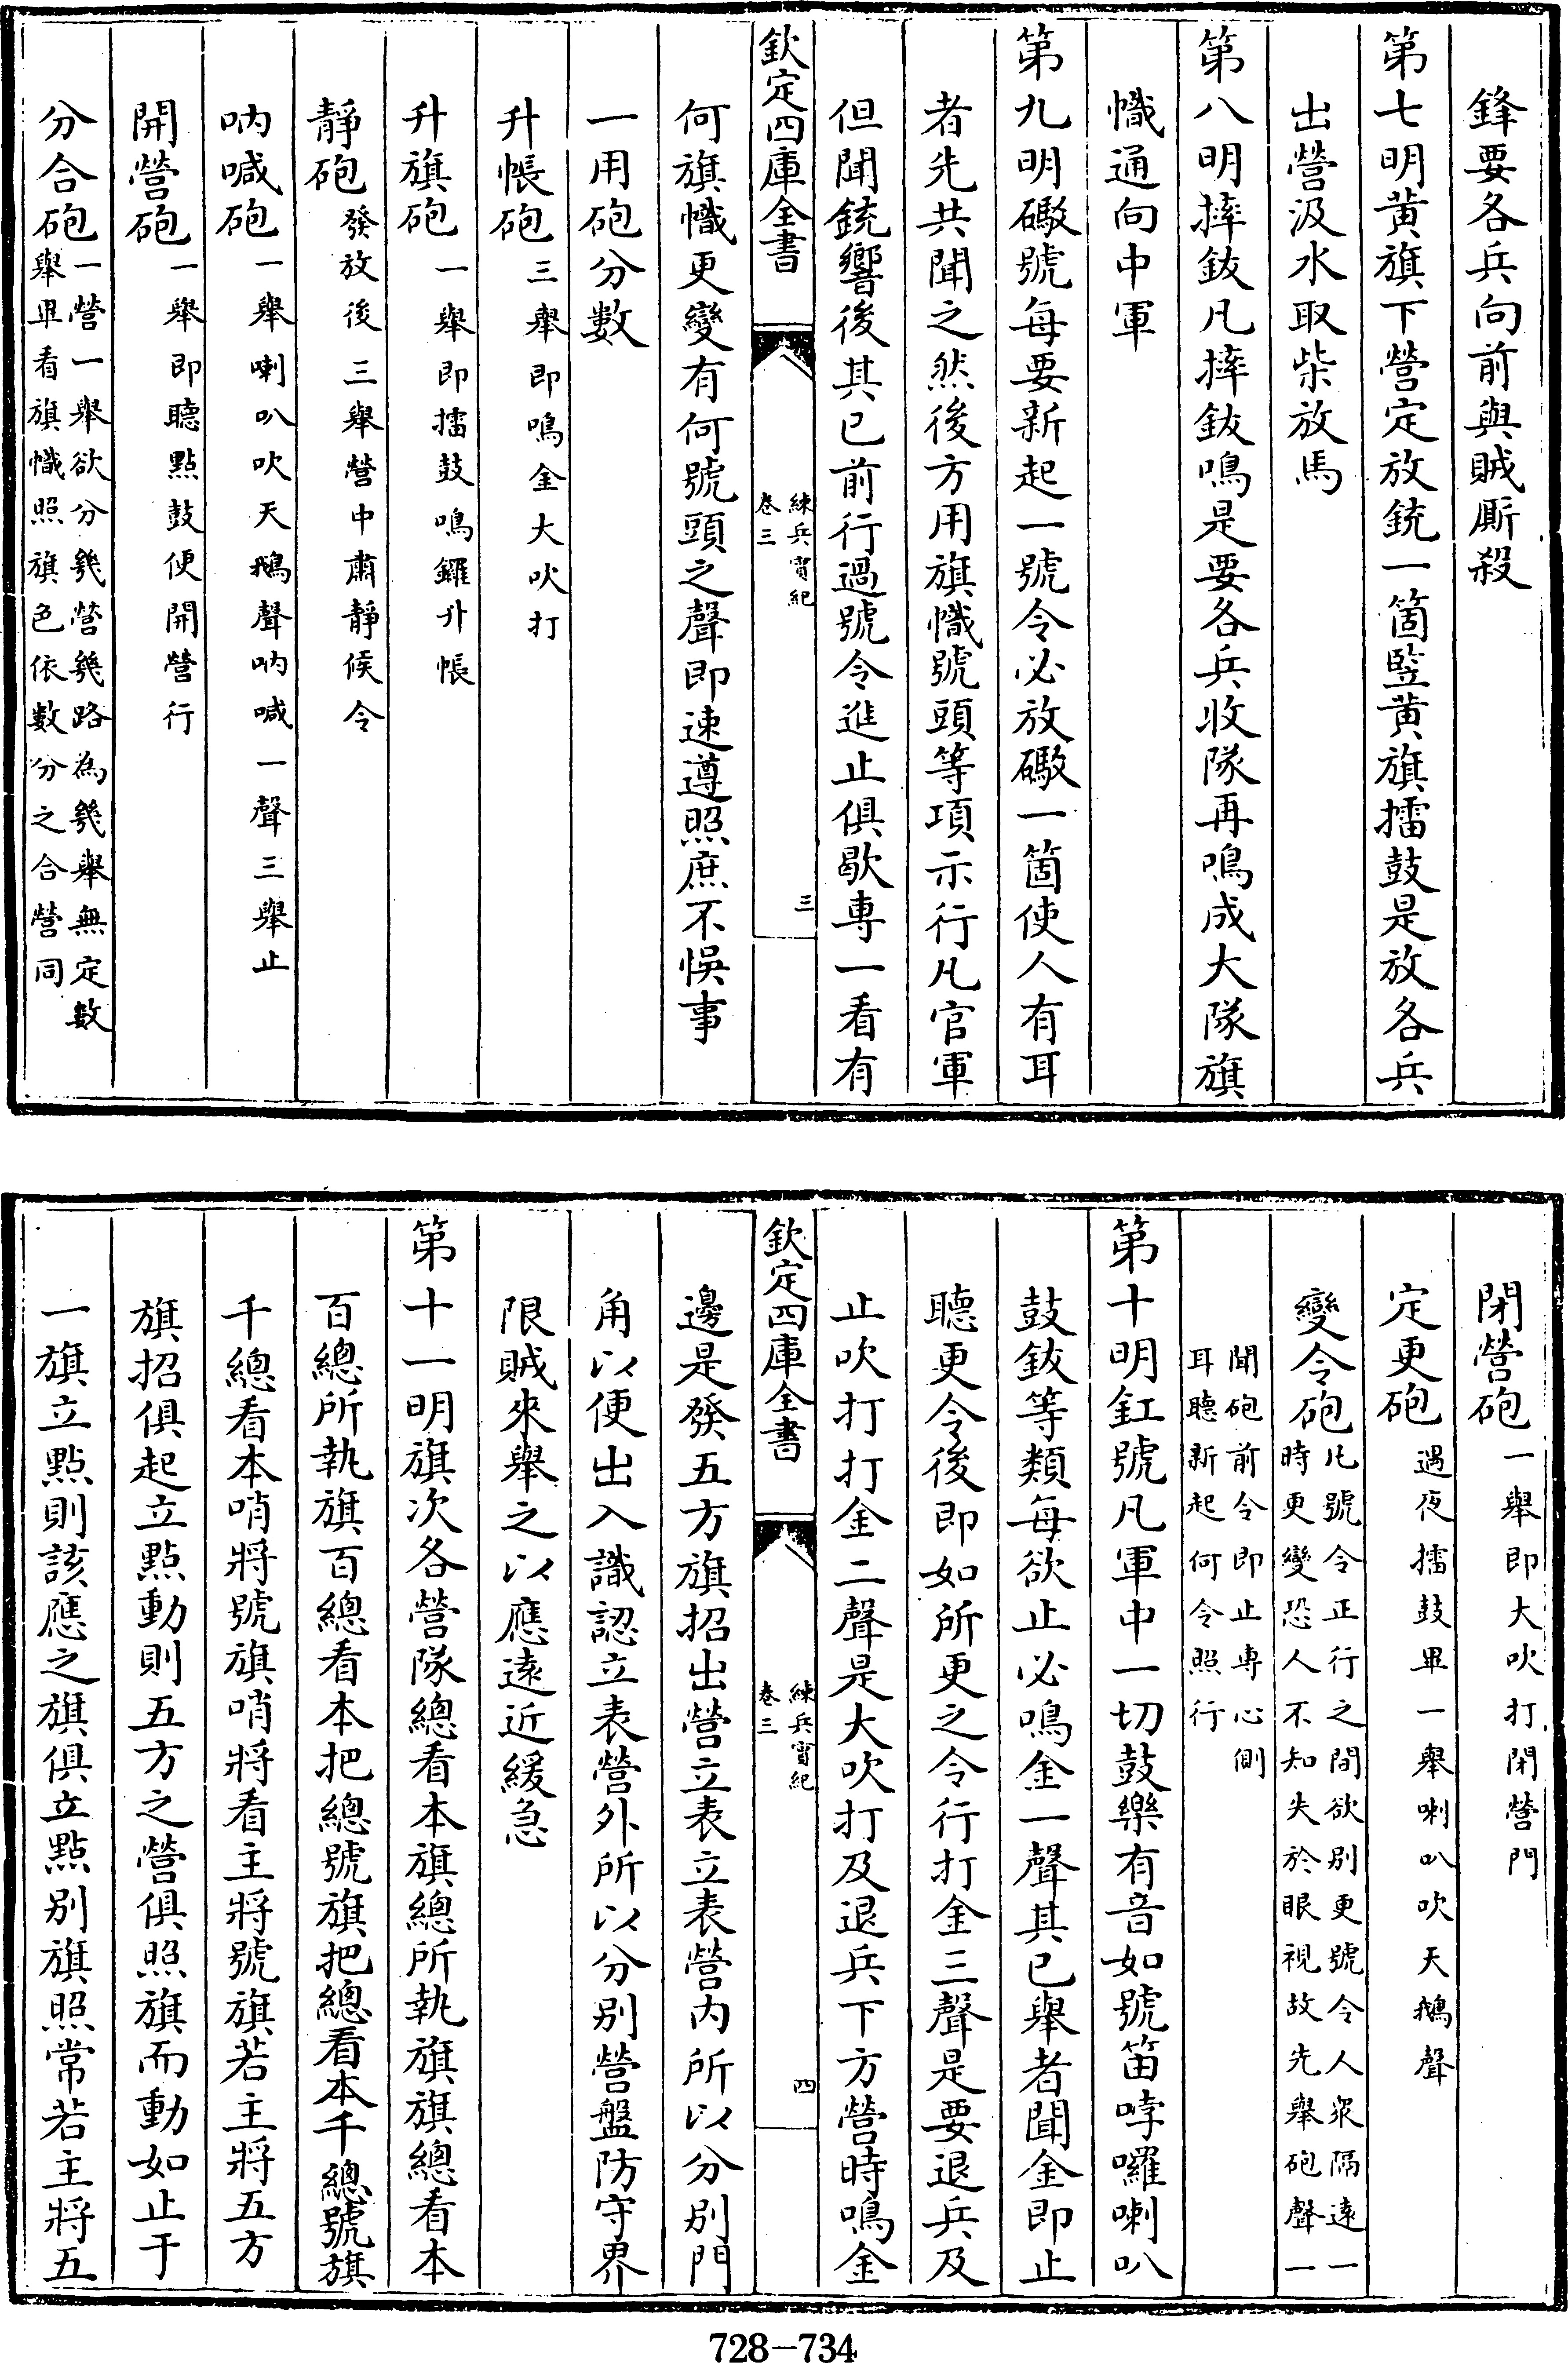 鋒要各兵向前與賊厮殺
第七明黃旗下營定放銃一箇竪黃旗擂鼓是放各兵
出營汲水取柴放馬
第八明摔鈸凡摔鈸鳴是要各兵收隊再鳴成大隊旗
幟通向中軍
第九明礮號每要新起一號令必放礮一箇使人有耳
者先共聞之然後方用旗幟號頭等項示行凡官軍
但聞銃響後其已前行過號令進止俱歇專一看有
欽定四庫全書
練兵實紀
卷三
三
何旗幟更變有何號頭之聲即速遵照庶不悞事
一用砲分數
升帳砲三舉即鳴金大吹打
升旗砲一舉即擂鼓鳴鑼升帳
靜砲發放後三舉營中肅靜候令
吶喊砲一舉喇叭吹天鵝聲吶喊一聲三舉止
開營砲一舉即聽點鼓便開營行
分合砲一營一舉欲分幾營幾路為幾舉無定數
舉畢看旗幟照旗色依數分之合營同
閉營砲一舉即大吹打閉營門
定更砲遇夜擂鼓畢一舉喇叭吹天鵝聲
變令砲凡號令正行之間欲別更號令人衆隔遠一
時更變恐人不知失於眼視故先舉砲聲一
聞砲前令即止專心側
耳聽新起何令照行
第十明釭號凡軍中一切鼓樂有音如號笛哱囉喇叭
鼓鈸等類每欲止必鳴金一聲其已舉者聞金即止
聽更令後即如所更之令行打金三聲是要退兵及
止吹打打金二聲是大吹打及退兵下方營時鳴金
欽定四庫全書
練兵實紀
卷三
四
邊是發五方旗招出營立表立表營內所以分別門
角以便出入識認立表營外所以分別營盤防守界
限賊來舉之以應遠近緩急
第十一明旗次各營隊總看本旗總所執旗旗總看本
百總所執旗百總看本把總號旗把總看本千總號旗
千總看本哨將號旗哨將看主將號旗若主將五方
旗招俱起立點動則五方之營俱照旗而動如止于
一旗立點則該應之旗俱立點別旗照常若主將五
728-734